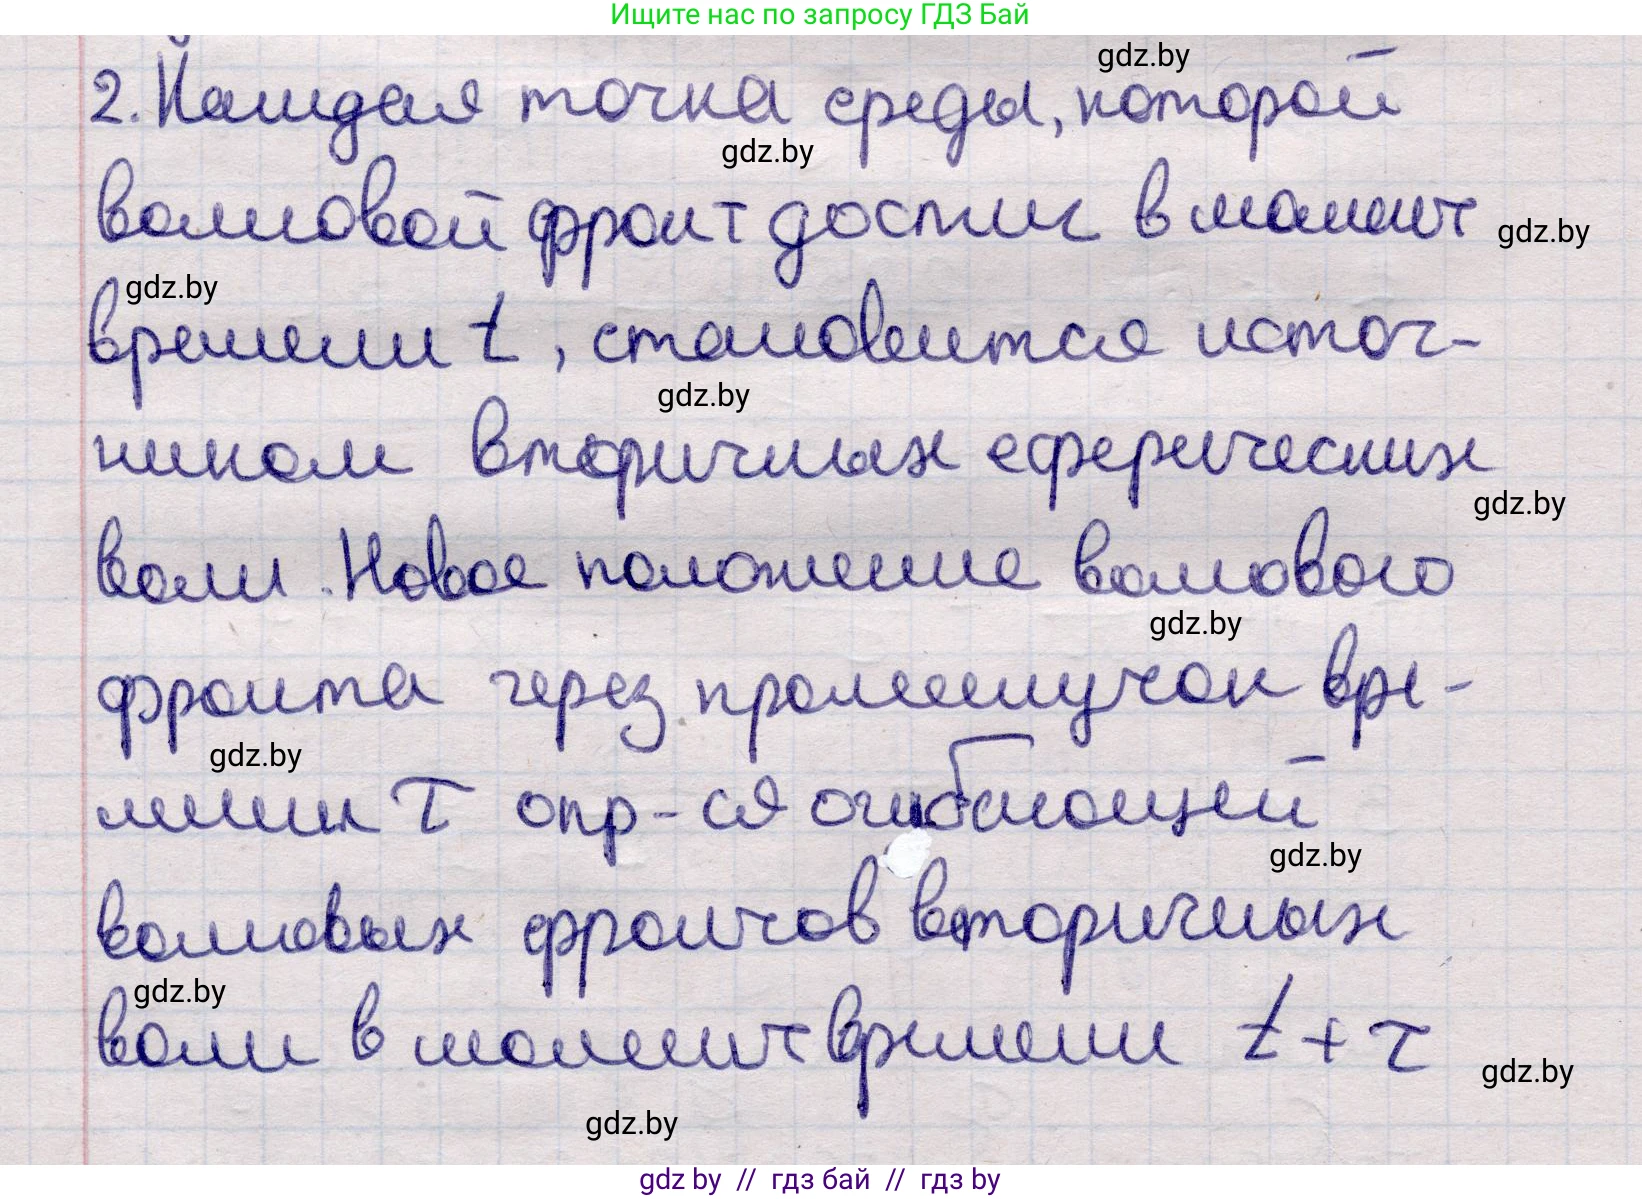 Ищите нас по запросу ГДЗ Бай
gdz.by
2. Каждая точка среды, которой
gdz.by
волновой фронт достиг в момент
gdz.by
gdz.by
времени t, становится источ-
gdz.by
ником вторичных сферических
gdz.by
волн. Новое положение волнового
gdz.by
фронта через промежучок вре-
gdz.by
мени τ опр-ся огибающей
gdz.by
волновых фронтов вторичных
gdz.by
волн в момент времени t + τ
gdz.by
gdz.by
gdz by // гдз бай // гдз by